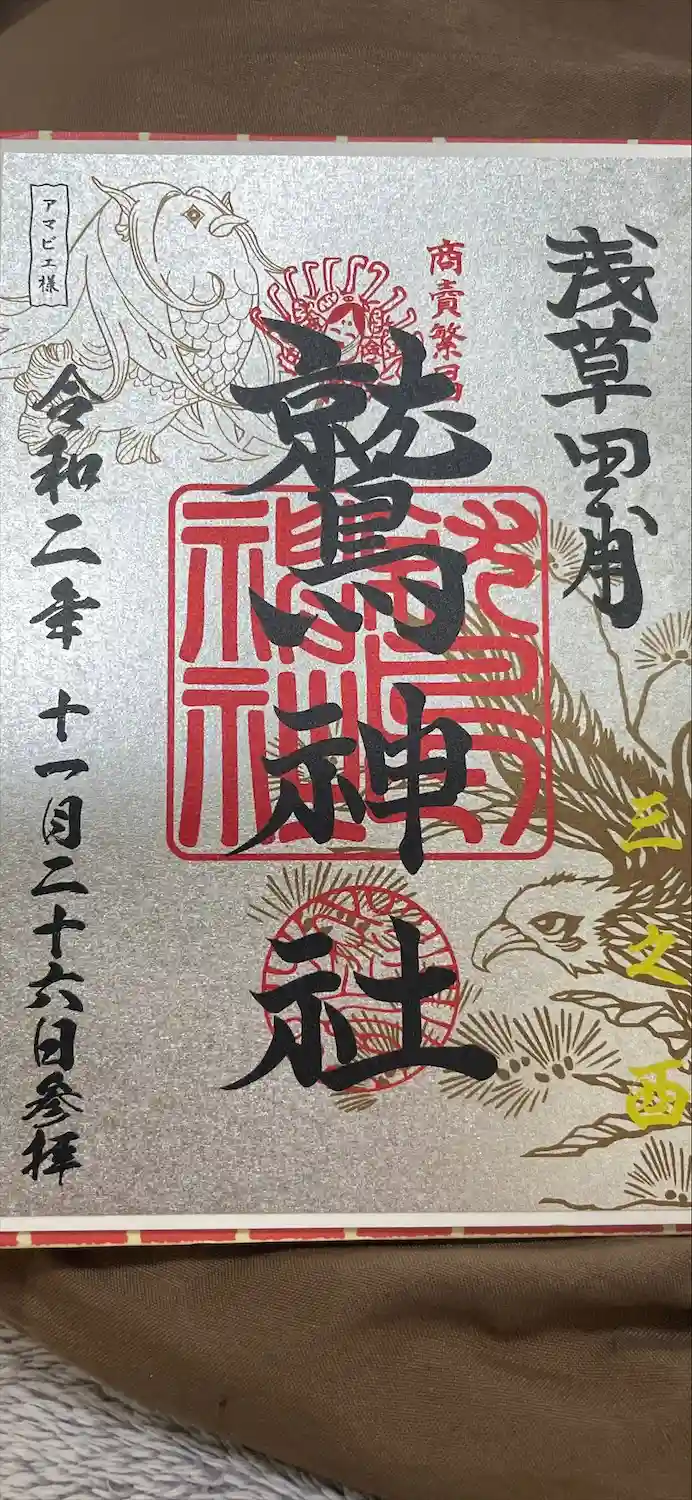 浅草田甫
三之酉
商賣繁昌
鷲神社
アマビエ様
令和二年十一月二十六日参拝